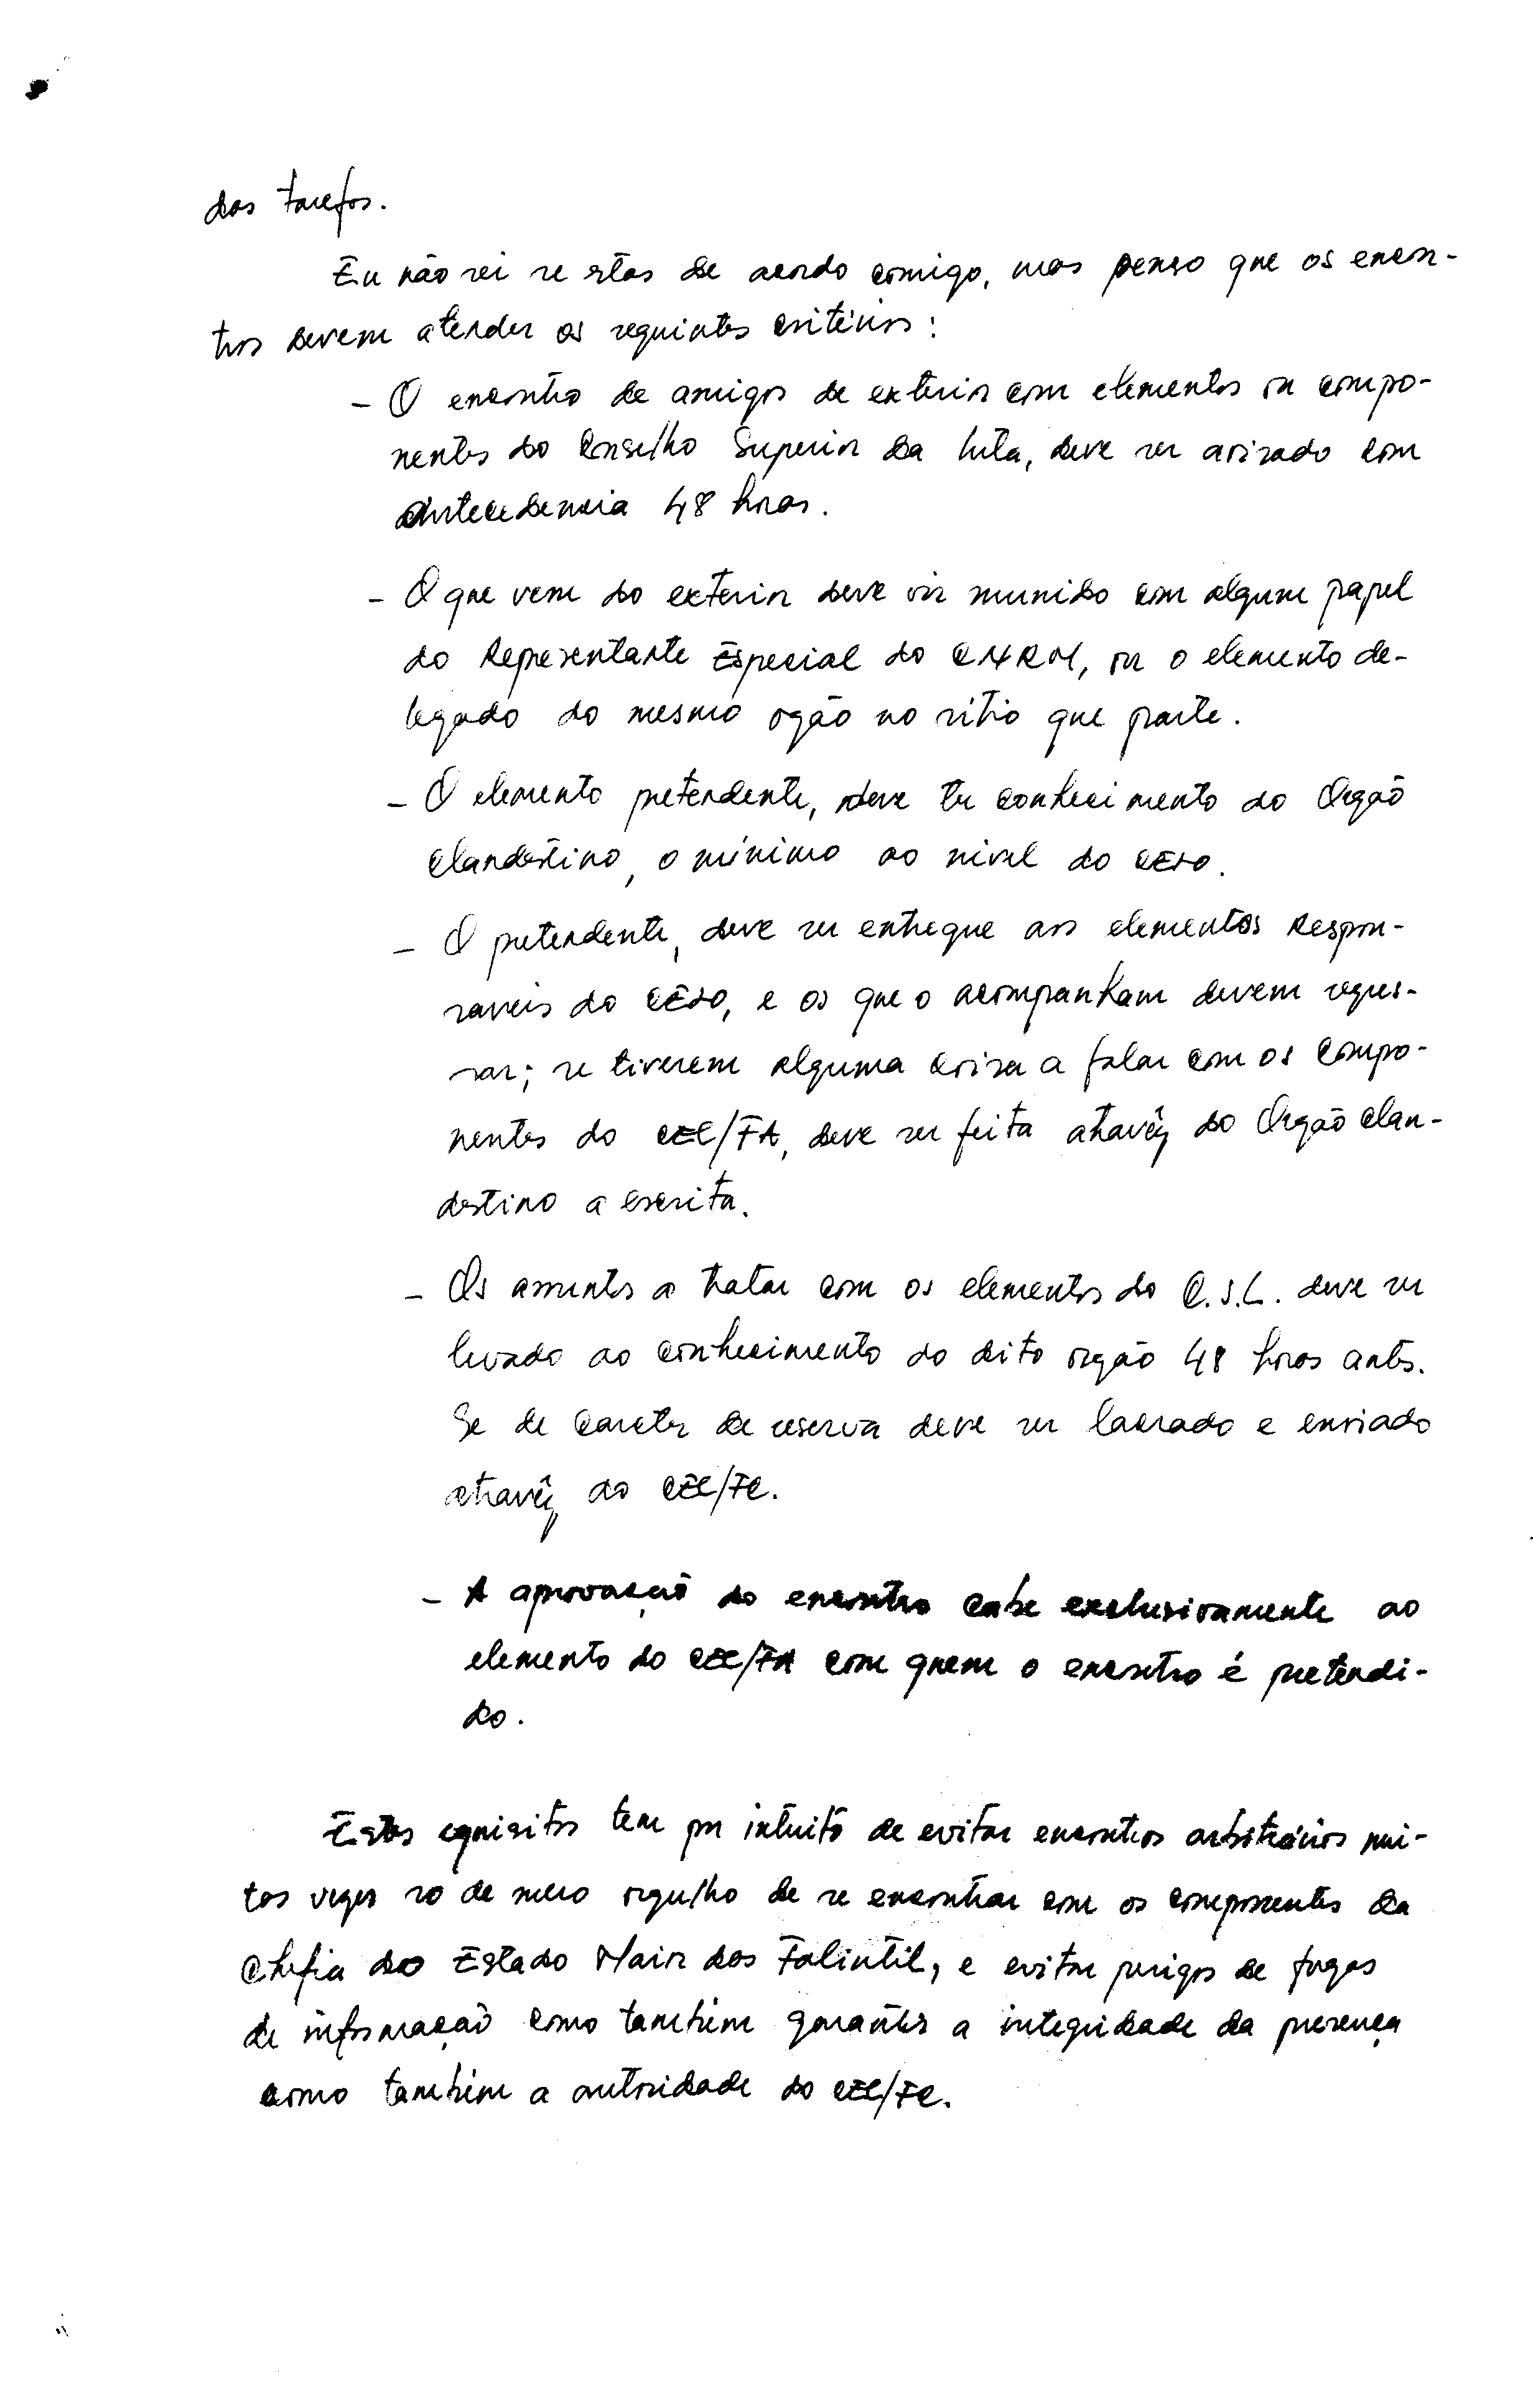 das tarefas.
Eu não sei se estas de acordo comigo, mas penso que os encon-
tros devem atender os seguintes critérios:
- O encontro de amigos de exterior com elementos ou compo-
nentes do Conselho Superior da Luta, deve ser avisado com
antecedencia 48 horas.
- O que vem do exterior deve vir munido com algum papel
do Representante Especial do CNRM, ou o elemento de-
legado do mesmo ogão no sitio que parte.
- O elemento pretendente, deve ter conhecimento do Orgão
clandestino, o mínimo ao nivel do
- O pretendente, deve ser entregue aos elementos Respon-
saveis do e os que o acompanham devem regres-
sar; se tiverem alguma coisa a falar com os compo-
nentes do CEL/FA, deve ser feita através do Orgão clan-
destino a escrita.
- Os assuntos a tratar com os elementos do C.S.L. deve ser
levado ao conhecimento do dito orgão 48 horas antes.
Se de carater de reserva deve ser lacrado e enviado
através do CEL/FC.
- A aprovação do encontro cabe exclusivamente ao
elemento do CEL/FA com quem o encontro é pretendi-
do.
Estes requisitos tem por intuito de evitar encontros arbitrários mui-
tas vezes so de mero orgulho de se encontrar com os componentes da
Chefia do Estado Maior das Falintil, e evitar perigos de fugas
de informação como também garantir a integridade da presença
como também a autoridade do CEL/FC.